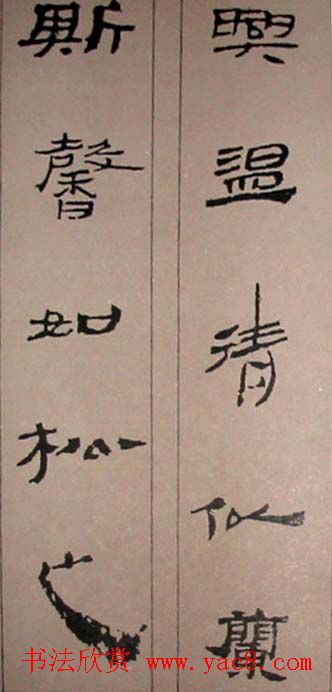 興温清似蘭
斯馨如松之
书法欣赏 www.yac8.com